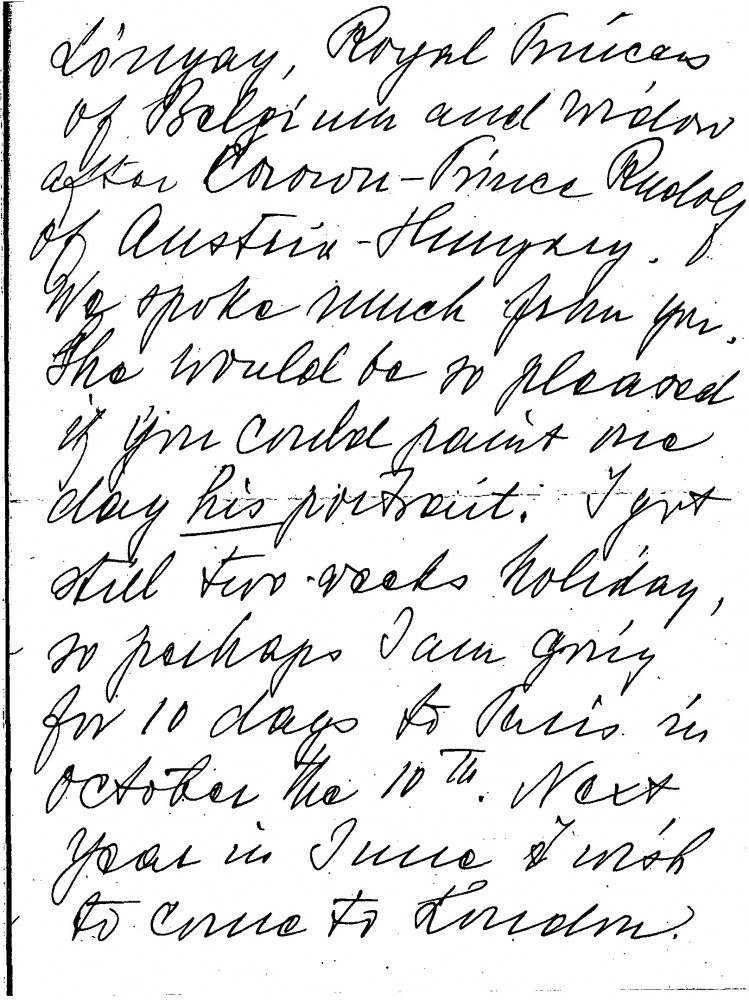 Lónyay, Royal Princess
of Belgium and Widow
after Crown-Prince Rudolf
of Austria-Hungary.
We spoke much from you.
She would be so pleased
if you could paint one
day his portrait. I got
still two weeks holiday,
so perhaps I am going
for 10 days to Paris in
October the 10th. Next
Year in June I wish
to come to London.